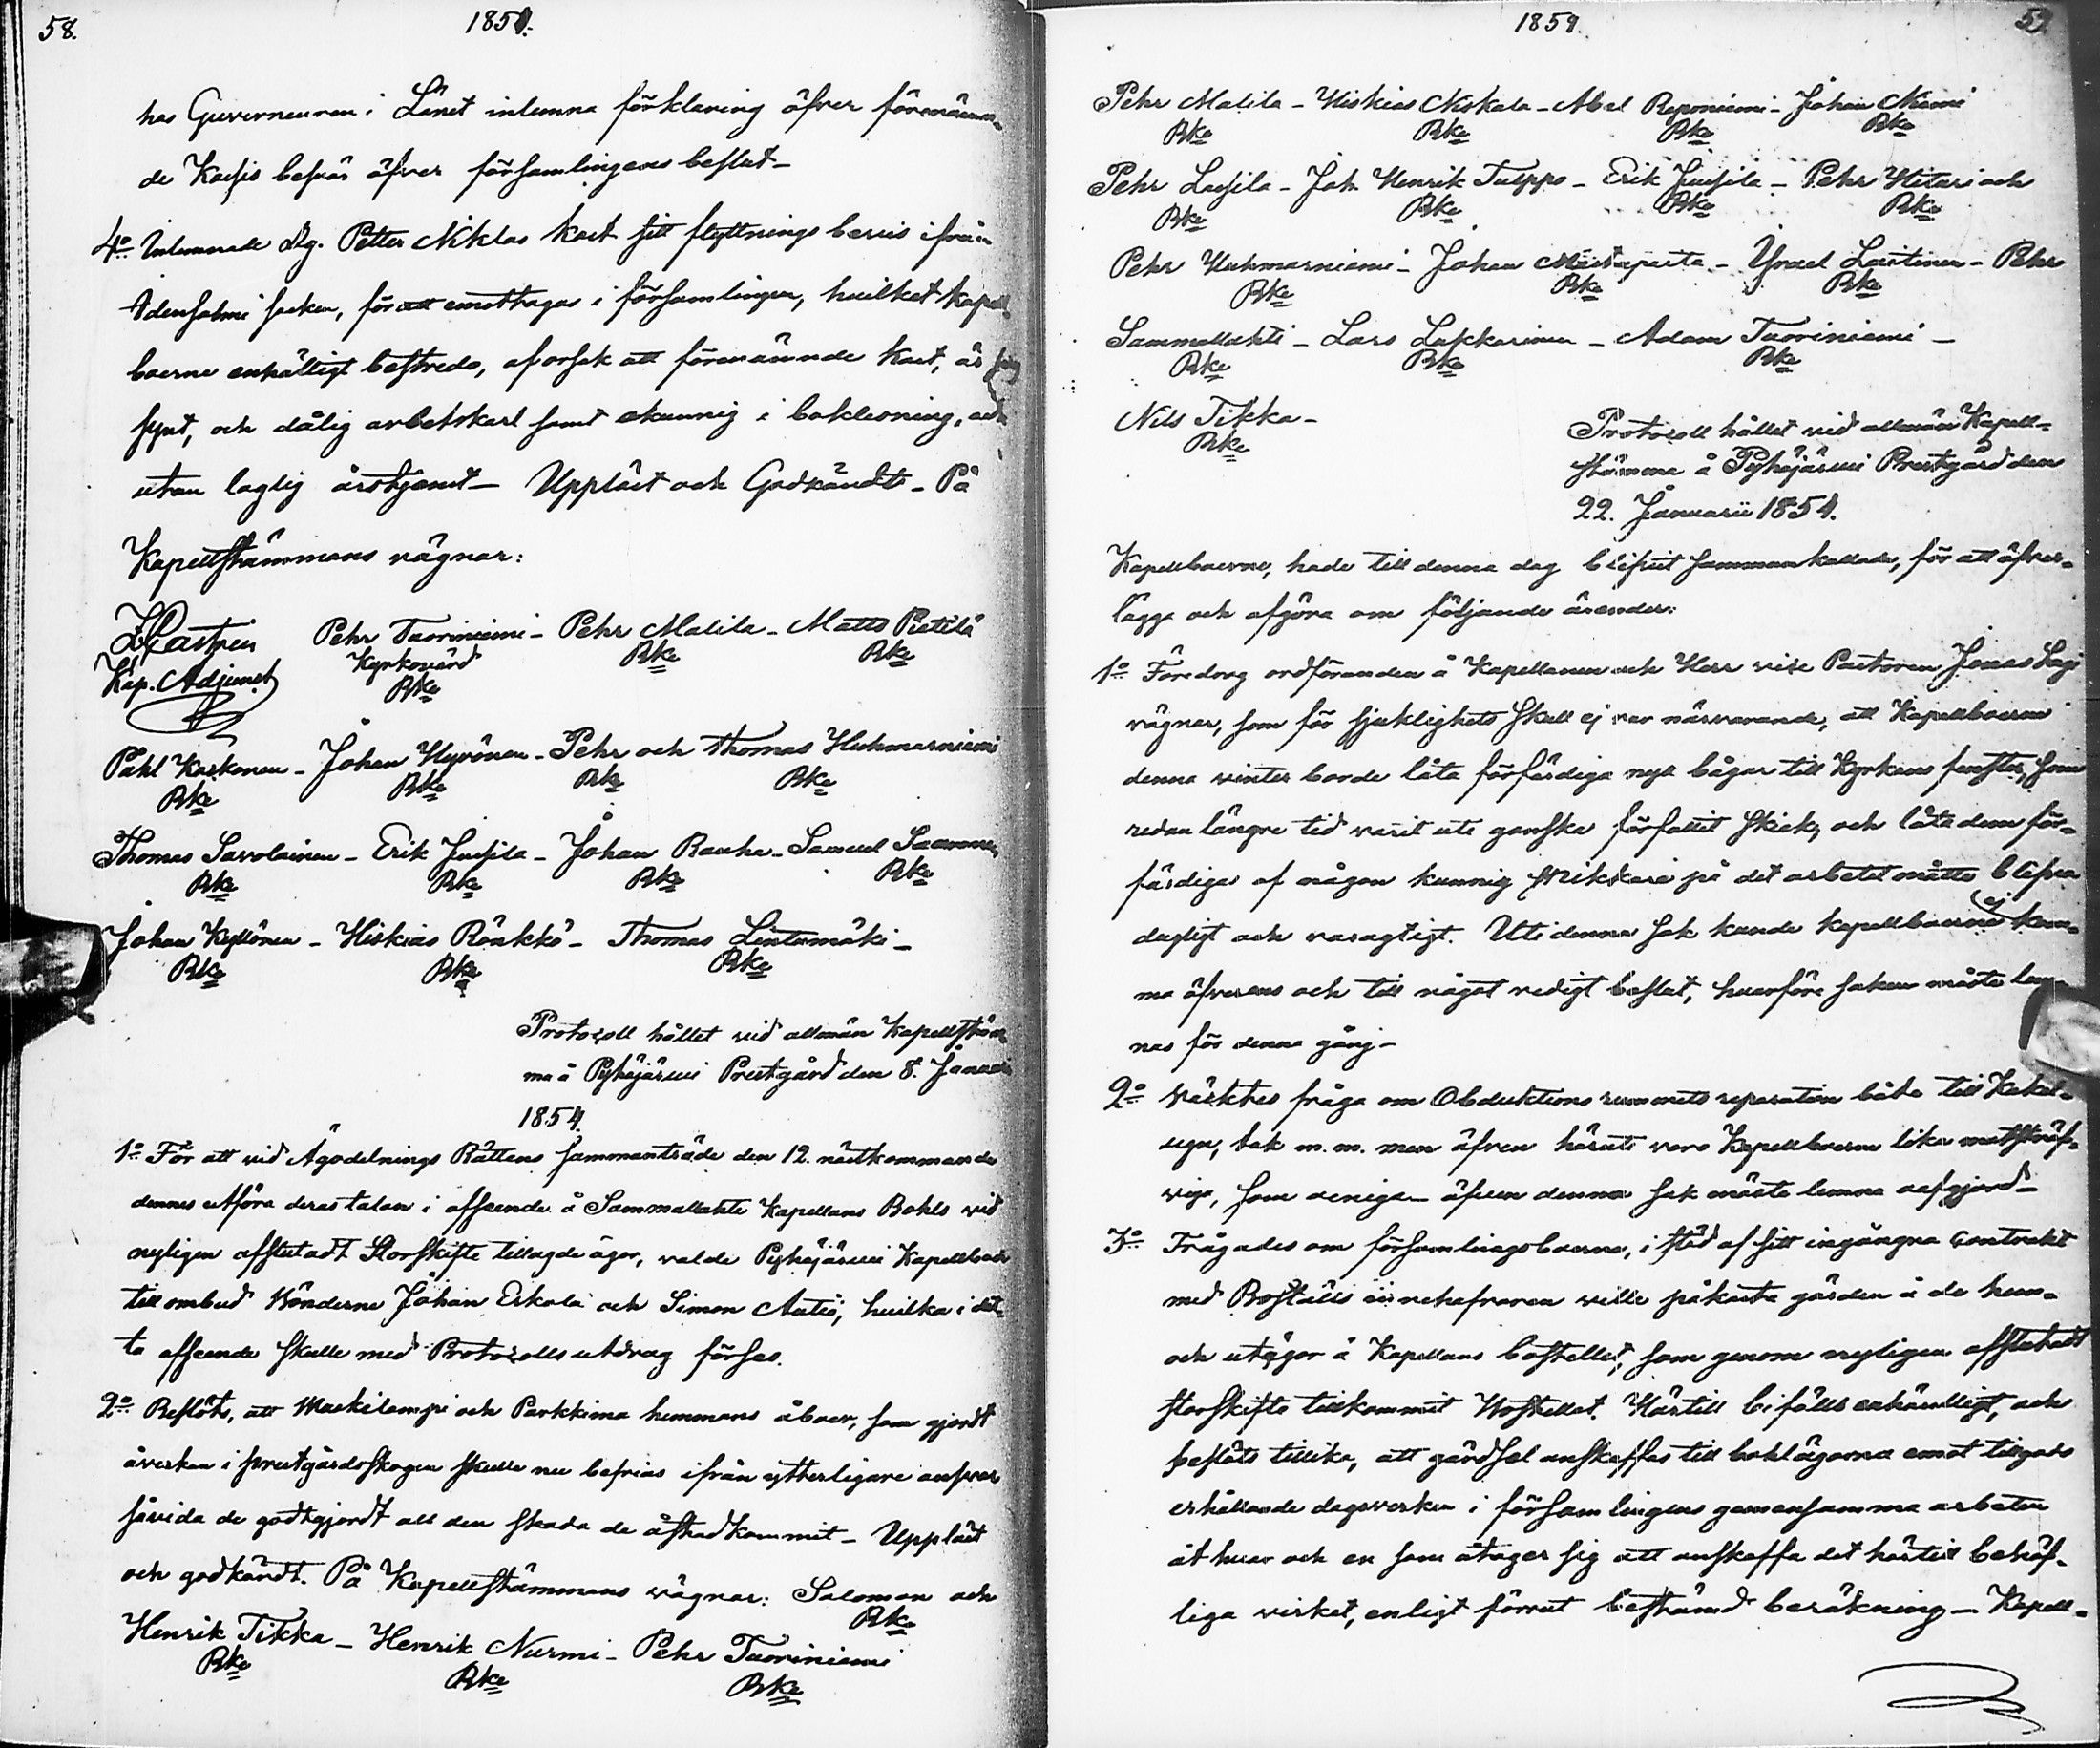 58.
1854.
hos Guverneuren i Länet inlemna förklaring öfver förenämn-
de Kassis besvär öfver församlingens beslut –
4:o Inlemnade Drg. Petter Niklas Kort sitt flyttnings bevis ifrån
Idensalmi socken, för att emottagas i församlingen, hvilket kapell-
boerne enhälligt bestredo, af orsak att förenämnde Kort, är
synt, och dålig arbetskarl samt okunnig i boklesning, och
utan laglig årstjenst – Uppläst och Godkändt – På
Kapellstämmans vägnar:
Kap. Adjunct
Pehr Tuoriniemi – Pehr Malila – Matts Pietilä
Kyrkovärd Bke Bke
Bke
Påhl Koskonen – Johan Hyvönen – Pehr och Thomas Huhmarniemi
Bke Bke Bke Bke
Thomas Savolainen – Erik Jussila – Johan Rauha – Samuel
Bke Bke Bke Bke
Johan Kyllönen – Hiskias Rönkkö – Thomas Lintumäki –
Bke Bke Bke
Protocoll hållet vid allmän Kapellstäm-
ma å Pyhäjärvi Prestgård den 8. Januari
1854.
1:o För att vid Ägodelnings Rättens sammanträde den 12. nästkommande
dennes utföra deras talan i afseende å Sammallahti Kapellans Bohls vid
nyligen afslutadt Storskifte tillagde ägor, valde Pyhäjärvi Kapellboer
till ombud Bönderne Johan Eskola och Simon Autio, hvilka i det-
ta afseende skulle med Protocolls utdrag förses.
2:o Beslöts, att Muckilampi och Parkkima hemmans åboer, som gjordt
åverkan i prestgårdsskogen skulle nu befrias ifrån ytterligare ansvar
såvida de godtgjordt all den skada de åstadkommit – Uppläst
och godkändt. På Kapellstämmans vägnar: Salomon och
Bke
Henrik Tikka – Henrik Nurmi – Pehr Tuoriniemi
Bke Bke Bke
1854.
59.
Pehr Malila – Hiskias Niskala – Abel Reponiemi – Johan Niemi
Bke Bke Bke Bke
Pehr Lassila – Joh. Henrik Tulppo – Erik Jussila – Pehr Hitari och
Bke Bke Bke Bke
Pehr Huhmarniemi – Johan – Israel Laitinen – Pehr
Bke Bke Bke
Sammallahti – Lars Lakkarinen – Adam Tuoriniemi –
Bke Bke Bke
Nils Tikka –
Bke
Protocoll hållet vid allmän Kapell-
stämma å Pyhäjärvi Prestgård den
22. Januarii 1854.
Kapellboerne, hade till denna dag blifvit sammankallade, för att öfver-
lägga och afgöra om följande ärender:
1:o Föredrog ordföranden å Kapellanen och Herr vice Pastoren Jonas Lagi
vägnar, som för sjuklighets skull ej var närvarande, att Kapellboerne
denna vinter borde låta förfärdiga nya bågar till Kyrkans fenster, som
redan längre tid varit uti ganska förfallit skick, och låta dem för-
färdigas af någon kunnig snikkare på det arbetet måtte blifva
dugligt och varagtigt. Uti denna sak kunde kapellboerne ej kom-
ma öfverens och till något redigt beslut, hvarföre saken måste lem-
nas för denna gång –
2:o Väcktes fråga om Obduktions rummets reparation både till Kakel-
ugn, tak m.m. men äfven häruti voro Kapellboerne lika motsträf-
viga, som oeniga – äfven denna sak måste lemna oafgjord –
3:o Frågades om församlingsboerne, i stöd af sitt ingångna contrakt
med Boställs innehafvaren ville påkosta gärden å de hem-
och utägor å Kapellans bostellet, som genom nyligen afslutadt
storskifte tillkommit Bostellet. Härtill bifölls enhälligt, och
beslöts tillika, att gärdsel anskaffas till bohlägorna emot tillgodo
erhållande dagsverken i församlingens gemensamma arbeten
åt hvar och en som åtager sig att anskaffa det härtill behöf-
liga virket, enligt förrut bestämd beräkning – Kapell-